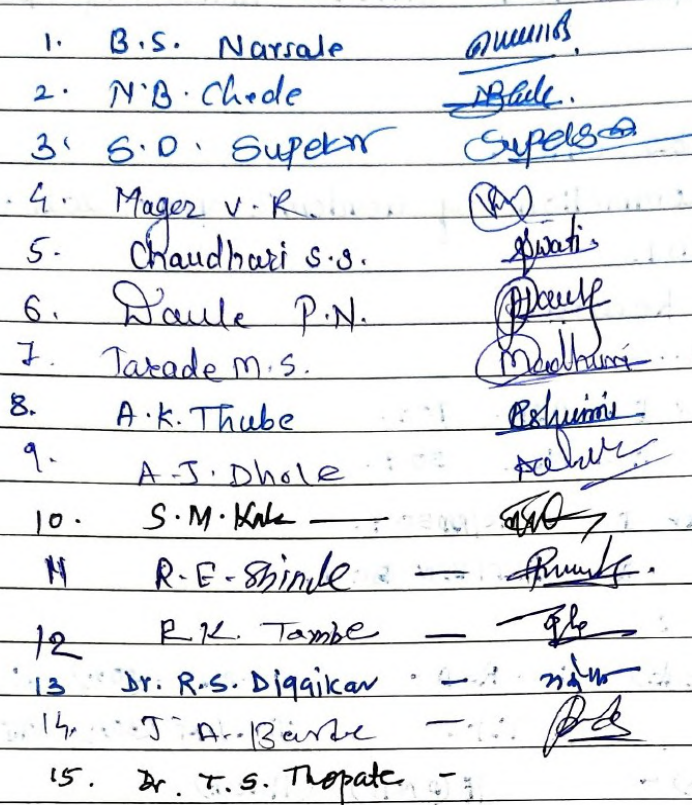 1. B.S. Narsale
2. N.B. Chede
3. S.D. Supekar Supekar
4. Mager V.R.
5. Chaudhari S.S. Swati
6. Daule P.N. PDaule
7. Tarade M.S. Madhuri
8. A.K. Thube Ashwini
9. A.J. Dhole
10. S.M. Kale —
11 R.E. Shinde —
12 R.K. Tambe —
13 Dr. R.S. Diggikar -
14. J A. —
15. Dr. T.S. Thopate -